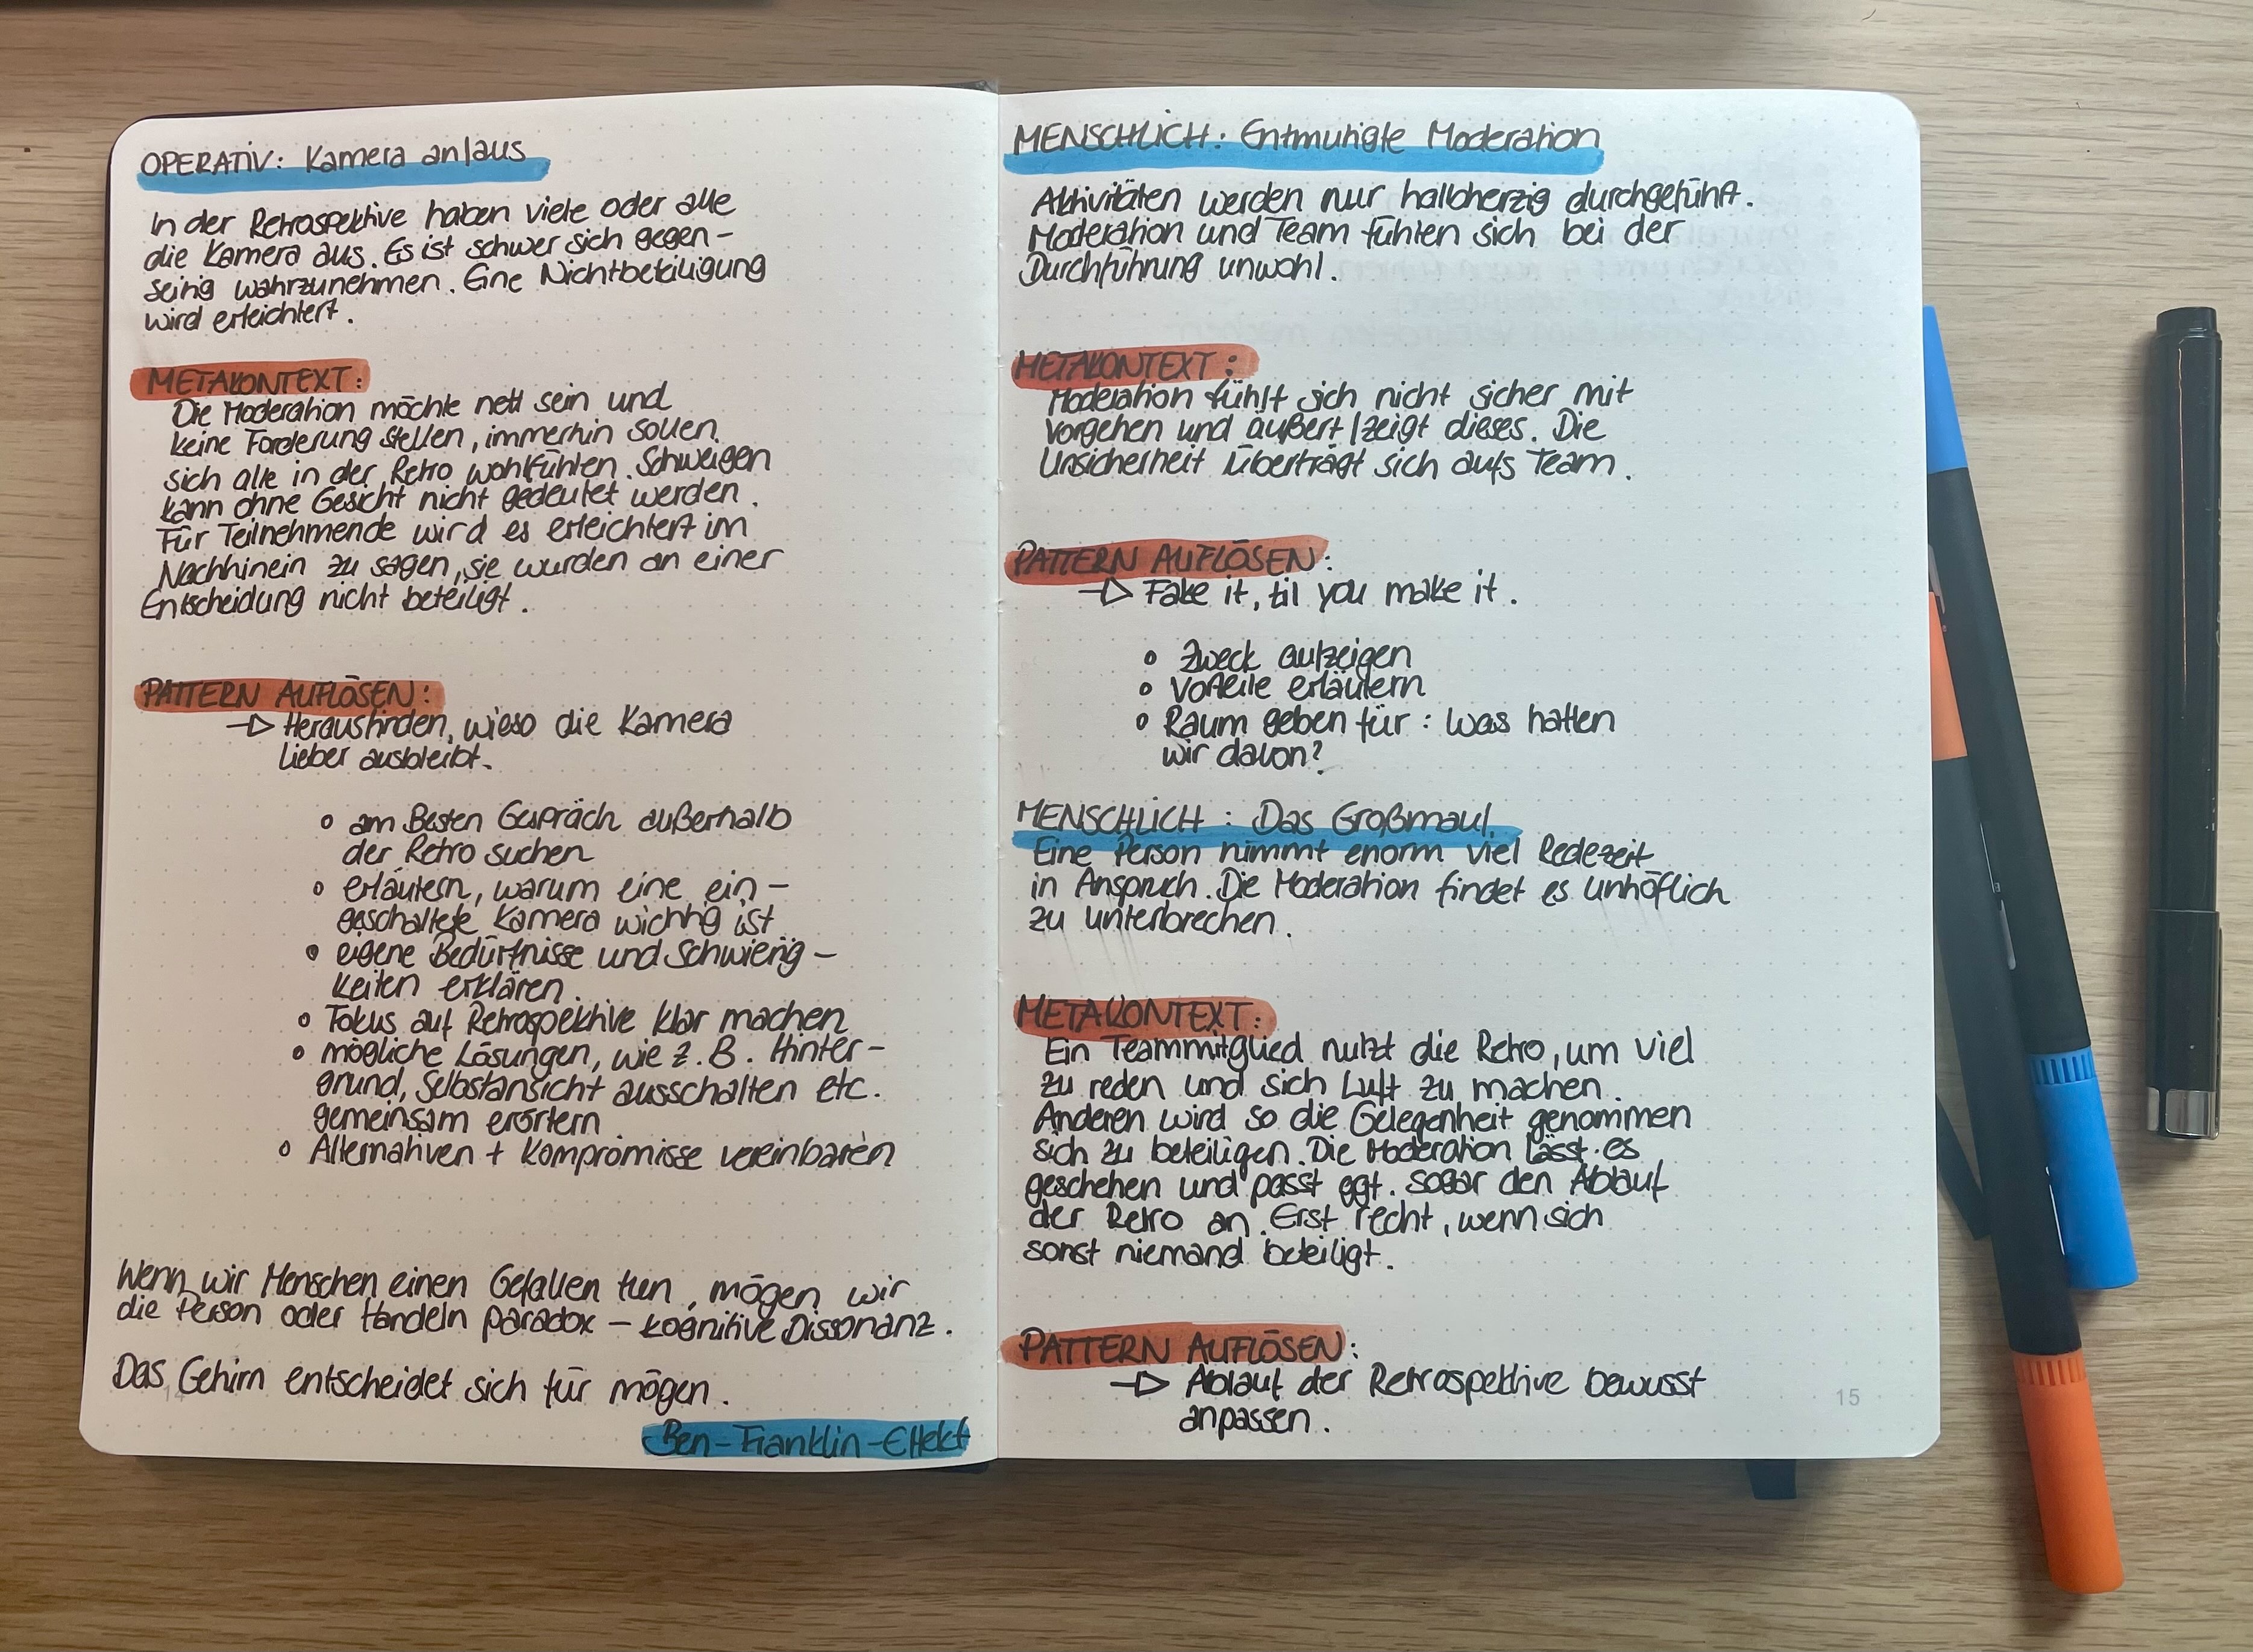 OPERATIV: Kamera an/aus
In der Retrospektive haben viele oder alle
die Kamera aus. Es ist schwer sich gegen-
seitig wahrzunehmen. Eine Nichtbeteiligung
wird erleichtert.
METAKONTEXT:
Die Moderation möchte nett sein und
keine Forderung stellen, immerhin sollen
sich alle in der Retro wohlfühlen. Schweigen
kann ohne Gesicht nicht gedeutet werden.
Für Teilnehmende wird es erleichtert im
Nachhinein zu sagen, sie wurden an einer
Entscheidung nicht beteiligt.
PATTERN AUFLÖSEN:
→ Herausfinden, wieso die Kamera
lieber ausbleibt.
• am Besten Gespräch außerhalb
der Retro suchen
• erläutern, warum eine ein-
geschaltete Kamera wichtig ist
• eigene Bedürfnisse und Schwierig-
keiten erklären.
• Fokus auf Retrospektive klar machen
• mögliche Lösungen, wie z.B. Hinter-
grund, Selbstansicht ausschalten etc.
gemeinsam erörtern
• Alternativen + Kompromisse vereinbaren
Wenn wir Menschen einen Gefallen tun, mögen wir
die Person oder Handeln paradox - kognitive Dissonanz.
Das Gehirn entscheidet sich für mögen.
14
Ben-Franklin-Effekt
MENSCHLICH: Entmutigte Moderation
Aktivitäten werden nur halbherzig durchgeführt.
Moderation und Team fühlen sich bei der
Durchführung unwohl.
METAKONTEXT:
Moderation fühlt sich nicht sicher mit
Vorgehen und äußert/zeigt dieses. Die
Unsicherheit überträgt sich aufs Team.
PATTERN AUFLÖSEN:
→ Fake it, til you make it.
• Zweck aufzeigen
• Vorteile erläutern
• Raum geben für: Was hatten
wir davon?
MENSCHLICH: Das Großmaul
Eine Person nimmt enorm viel Redezeit
in Anspruch. Die Moderation findet es unhöflich
zu unterbrechen.
METAKONTEXT:
Ein Teammitglied nutzt die Retro, um viel
zu reden und sich Luft zu machen.
Anderen wird so die Gelegenheit genommen
sich zu beteiligen. Die Moderation lässt es
geschehen und passt ggf. sogar den Ablauf
der Retro an. Erst recht, wenn sich
sonst niemand beteiligt.
PATTERN AUFLÖSEN:
→ Ablauf der Retrospektive bewusst
anpassen.
15